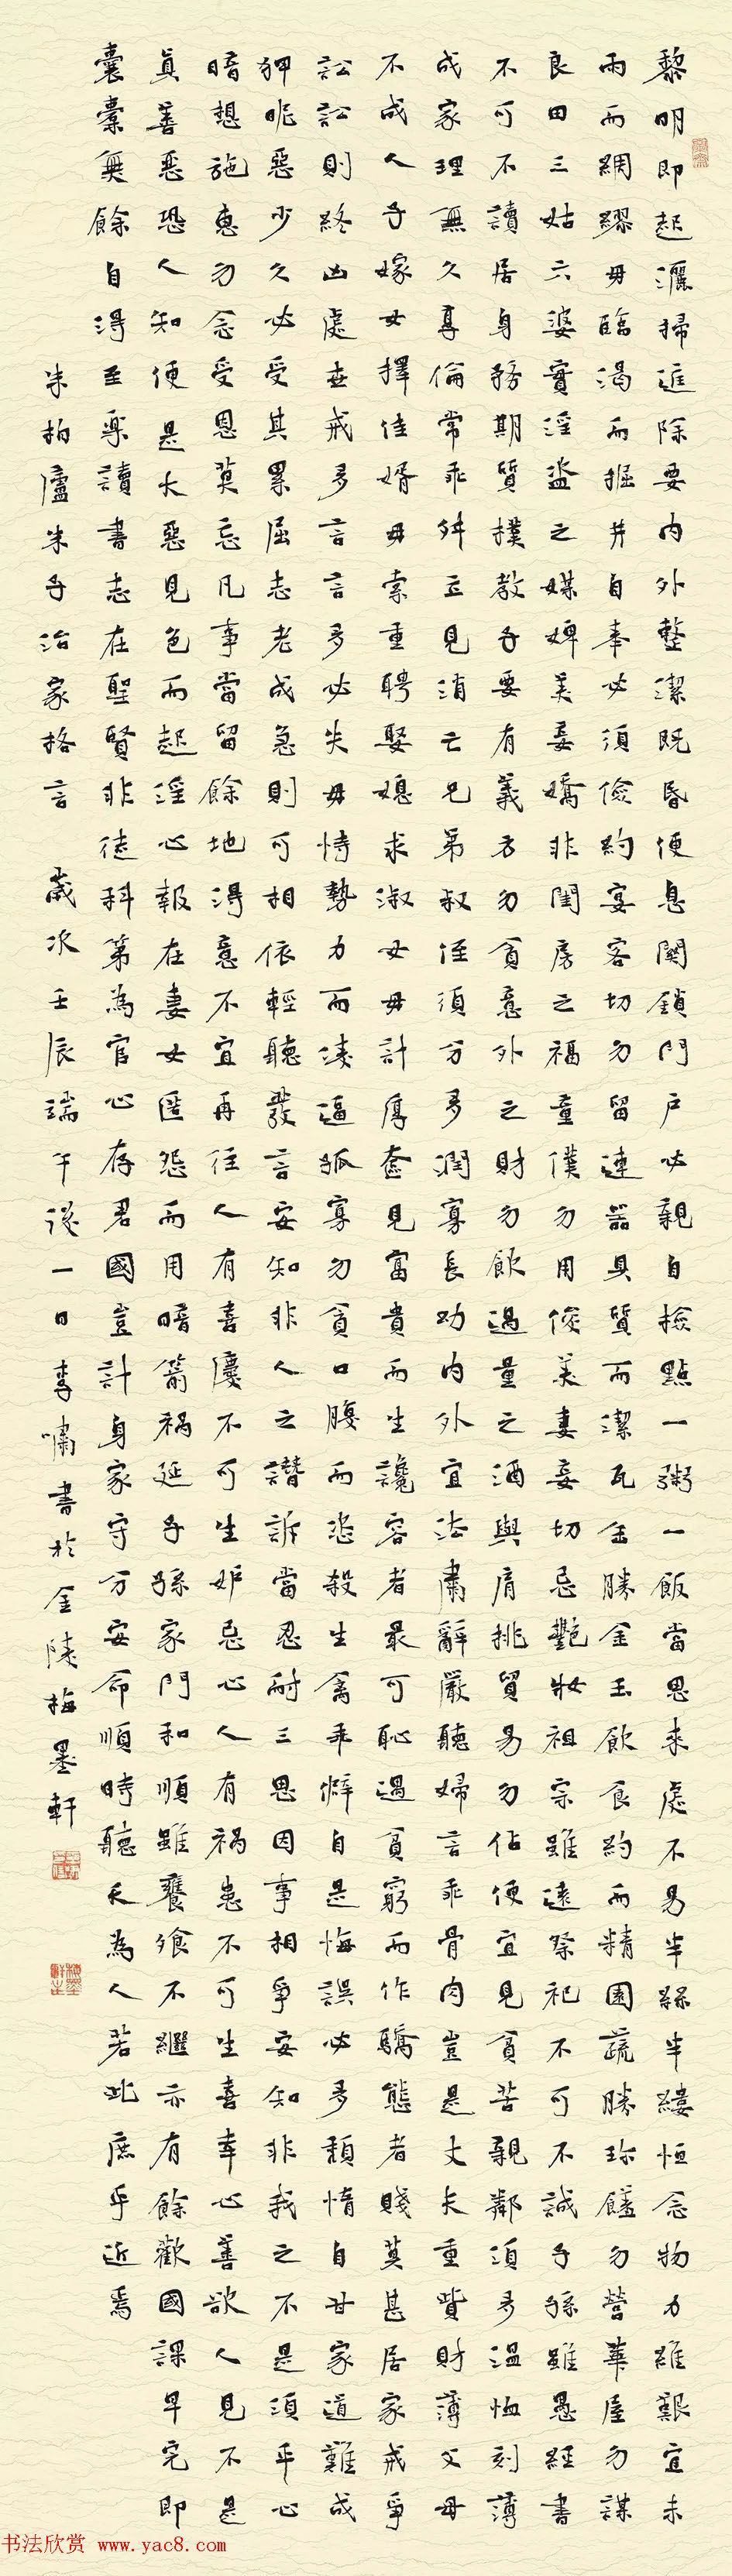 黎明即起灑掃進除要內外整潔既昏便息關鎖門戶必親自撿點一粥一飯當思來處不易半絲半縷恒念物力維艱宜未
雨而綢繆毋臨渴而掘井自奉必須儉約宴客切勿留連器具質而潔瓦缶勝金玉飲食約而精園蔬勝珍饈勿營華屋勿謀
良田三姑六婆實淫盜之媒婢美妾嬌非閨房之福童僕勿用俊美妻妾切忌艷妝祖宗雖遠祭祀不可不誠子孫雖愚經書
不可不讀居身務期質樸教子要有義方勿貪意外之財勿飲過量之酒與肩挑貿易勿佔便宜見貧苦親鄰須多溫恤刻薄
成家理無久享倫常乖舛立見消亡兄弟叔侄須分多潤寡長幼內外宜法肅辭嚴聽婦言乖骨肉豈是丈夫重貲財薄父母
不成人子嫁女擇佳婿毋索重聘娶媳求淑女毋計厚奩見富貴而生讒容者最可恥過貧窮而作驕態者賤莫甚居家戒爭
訟訟則終凶處世戒多言言多必失毋恃勢力而淩逼孤寡勿貪口腹而恣殺生禽乖僻自是悔誤必多頹惰自甘家道難成
狎昵惡少久必受其累屈志老成急則可相依輕聽發言安知非人之譖訴當忍耐三思因事相爭安知非我之不是須平心
暗想施惠勿念受恩莫忘凡事當留餘地得意不宜再往人有喜慶不可生妒忌心人有禍患不可生喜幸心善欲人見不是
真善惡恐人知便是大惡見色而起淫心報在妻女匿怨而用暗箭禍延子孫家門和順雖饔飧不繼亦有餘歡國課早完即
囊橐無餘自得至樂讀書志在聖賢非徒科第為官心存君國豈計身家守分安命順時聽天為人若此庶乎近焉
朱柏廬朱子治家格言 歲次壬辰端午後一日李嘯書於金陵梅墨軒
书法欣赏 www.yac8.com